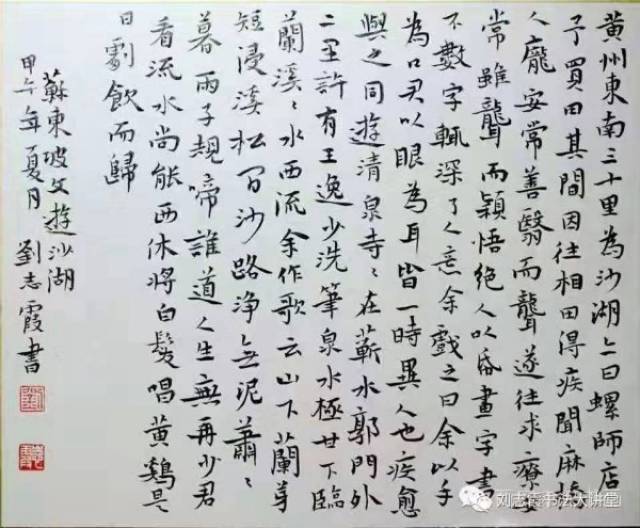 黃州東南三十里為沙湖亦曰螺師店
予買田其間因往相田得疾聞麻橋
人龐安常善醫而聾遂往求療安
常雖聾而穎悟絕人以帋畫字書
不數字輒深了人意余戲之曰余以手
為口君以眼為耳皆一時異人也疾愈
與之同遊清泉寺〻在蘄水郭門外
二里許有王逸少洗筆泉水極甘下臨
蘭溪〻水西流余作歌云山下蘭芽
短浸溪松間沙路淨無泥蕭〻
暮雨子規啼誰道人生無再少君
看流水尚能西休將白髮唱黃鷄是
日劇飲而歸
蘇東坡文遊沙湖
甲午年夏月 劉志霞書
刘志霞书法大讲堂